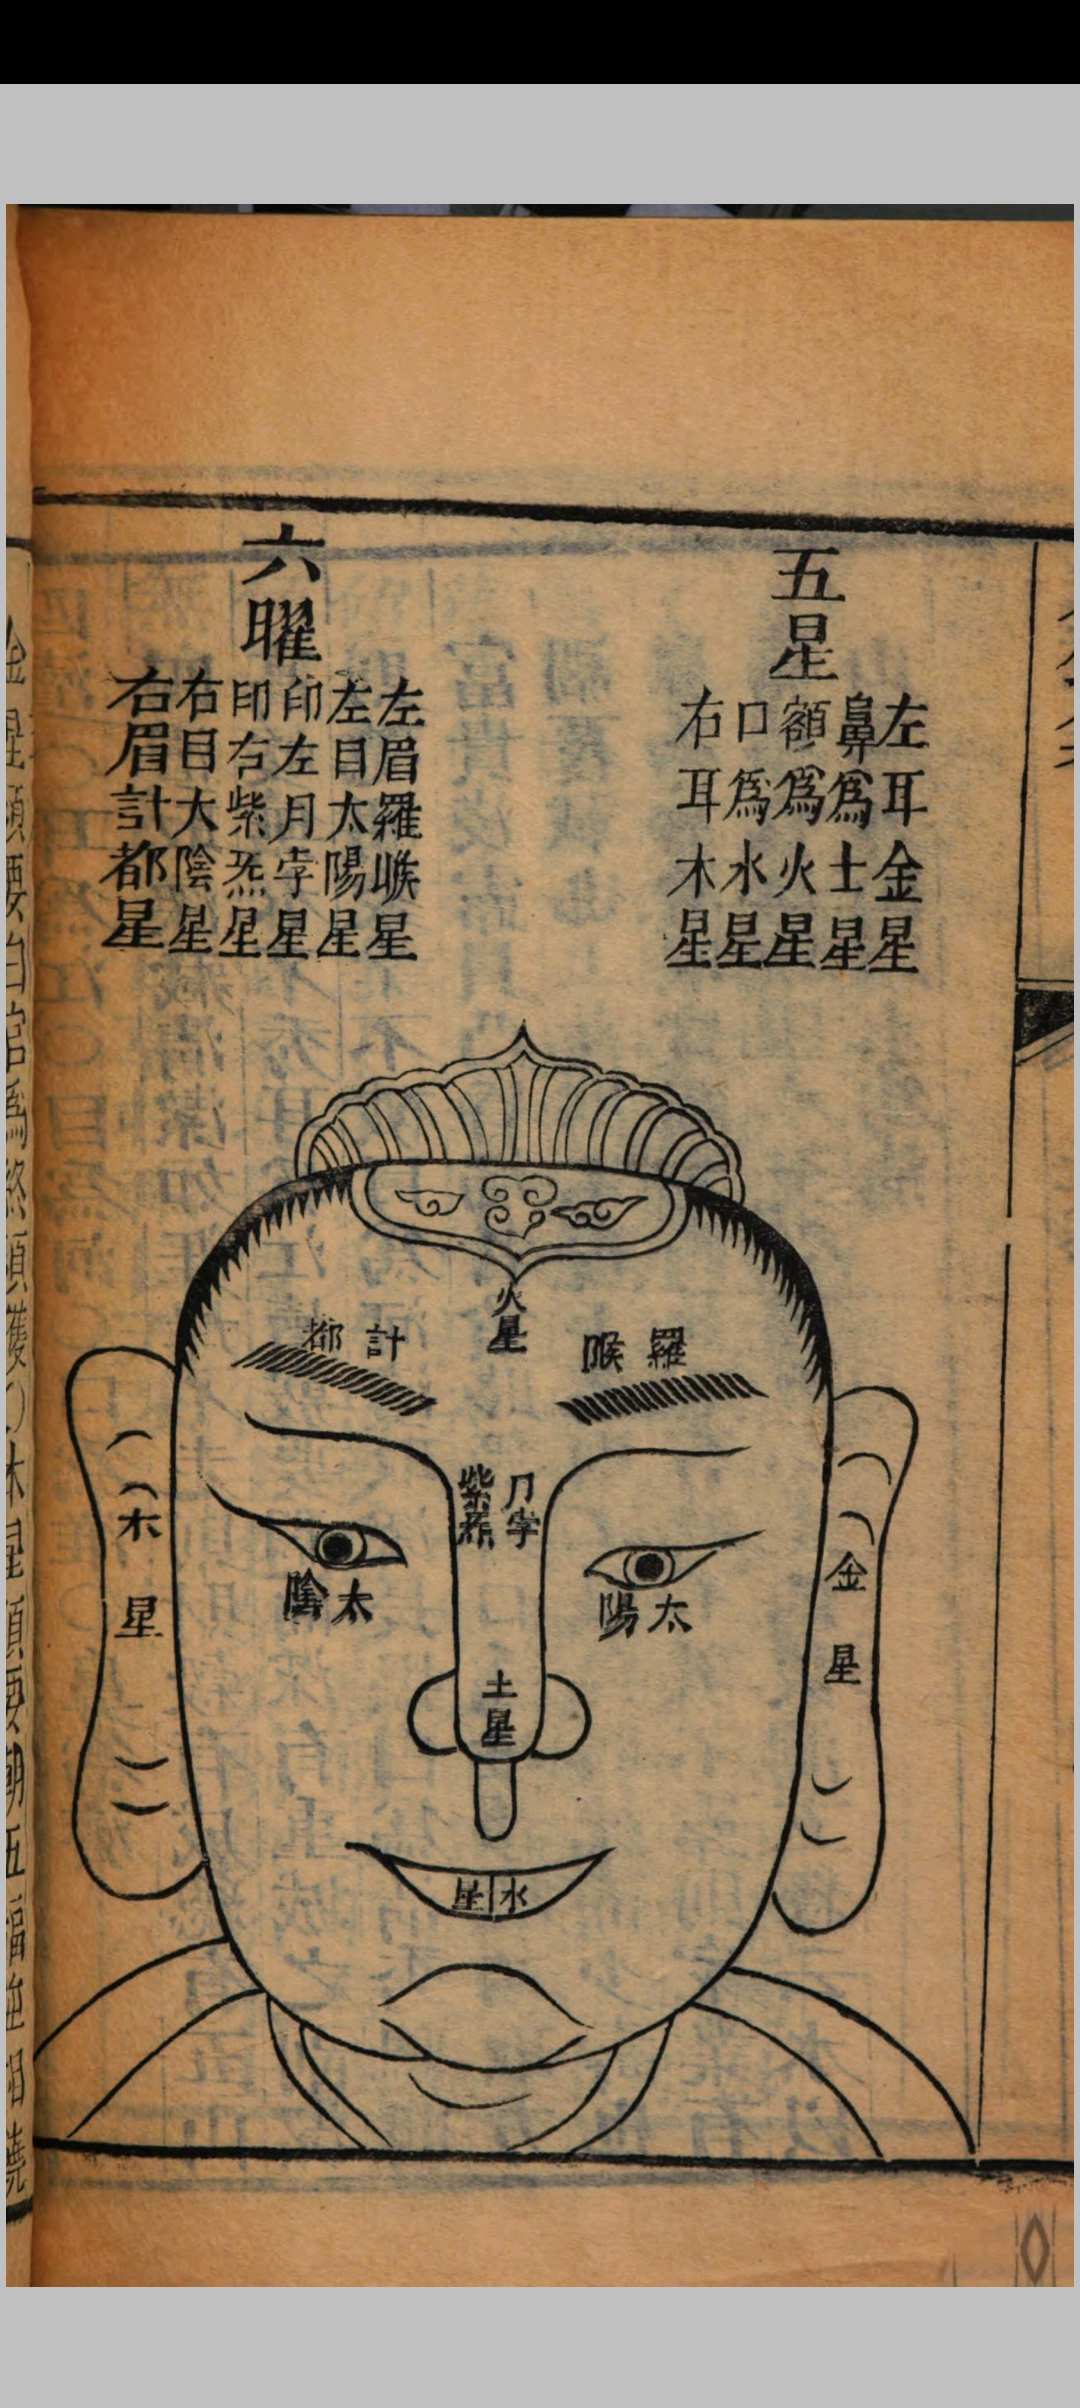 五星
左耳金星
鼻爲土星
額爲火星
口爲水星
右耳木星
六曜
左眉羅㬋星
左目太陽星
印左月孛星
印右紫炁星
右目大陰星
右眉計都星
火星
羅㬋
計都
月孛
紫炁
太陽
太陰
金星
木星
土星
水星
金星須要白官爲終須獲〇木星須要朝五福並相饒